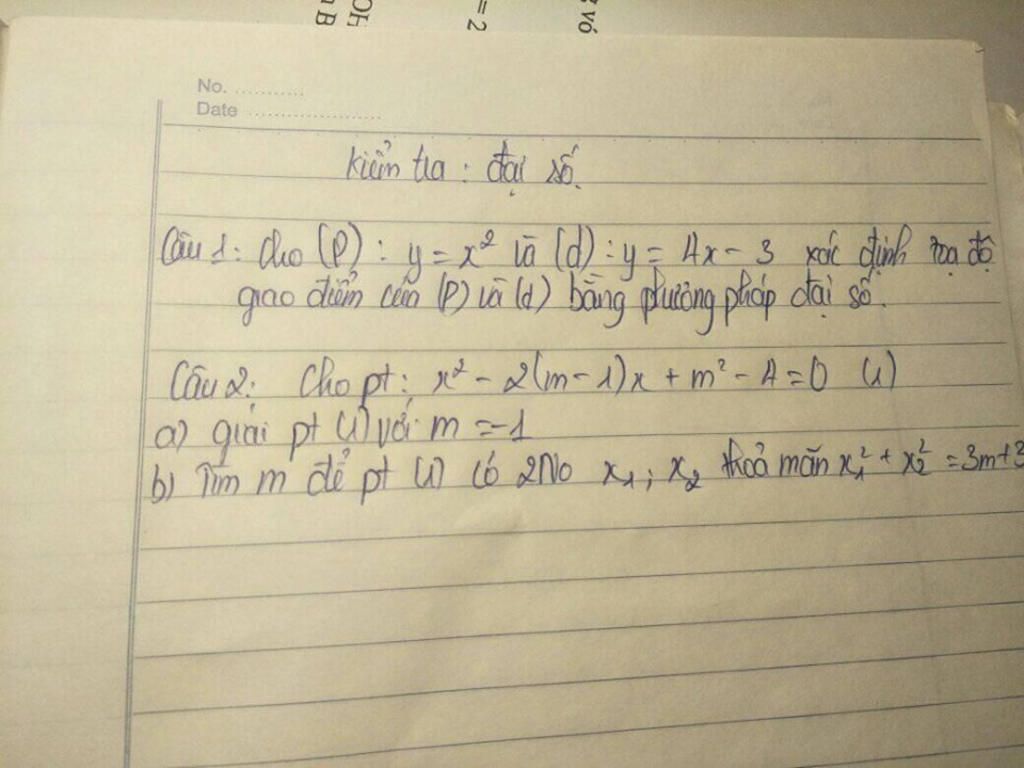 OH
n B
= 2
vó
No. ...........
Date ......................
Kiểm tra : đại số.
Câu 1: Cho (P) : y = x² và (d) : y = 4x - 3 xác định toạ độ
giao điểm của (P) và (d) bằng phương pháp đại số.
Câu 2: Cho pt : x² - 2(m - 1)x + m² - 4 = 0 (1)
a) giải pt (1) với m = -1
b) Tìm m để pt (1) có 2 No x₁ ; x₂ thoả mãn x₁² + x₂² = 3m+3